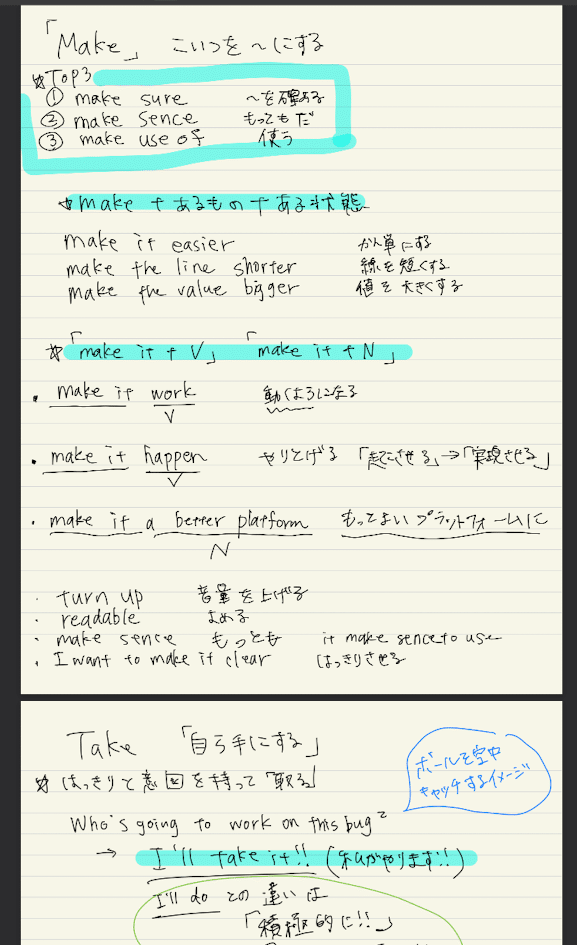 「Make」 こいつを〜にする
☆TOP3
① make sure 〜を確める
② make sence もっともだ
③ make use of 使う
☆make + あるもの + ある状態
make it easier かん単にする
make the line shorter 線を短くする
make the value bigger 値を大きくする
☆「make it + V」 「make it + N」
・make it work 動くようになる
V
・make it happen やりとげる 「起こさせる」→「実現させる」
V
・make it a better platform もってよいプラットフォームに
N
・turn up 音量を上げる
・readable よめる
・make sence もっとも it make sence to use
・I want to make it clear はっきりさせる
Take 「自ら手にする」
☆はっきりと意図を持って「取る」
ボールを空中
キャッチするイメージ
Who's going to work on this bug?
→ I'll take it!! (私がやります!!)
I'll do との違いは
「積極的に!!」